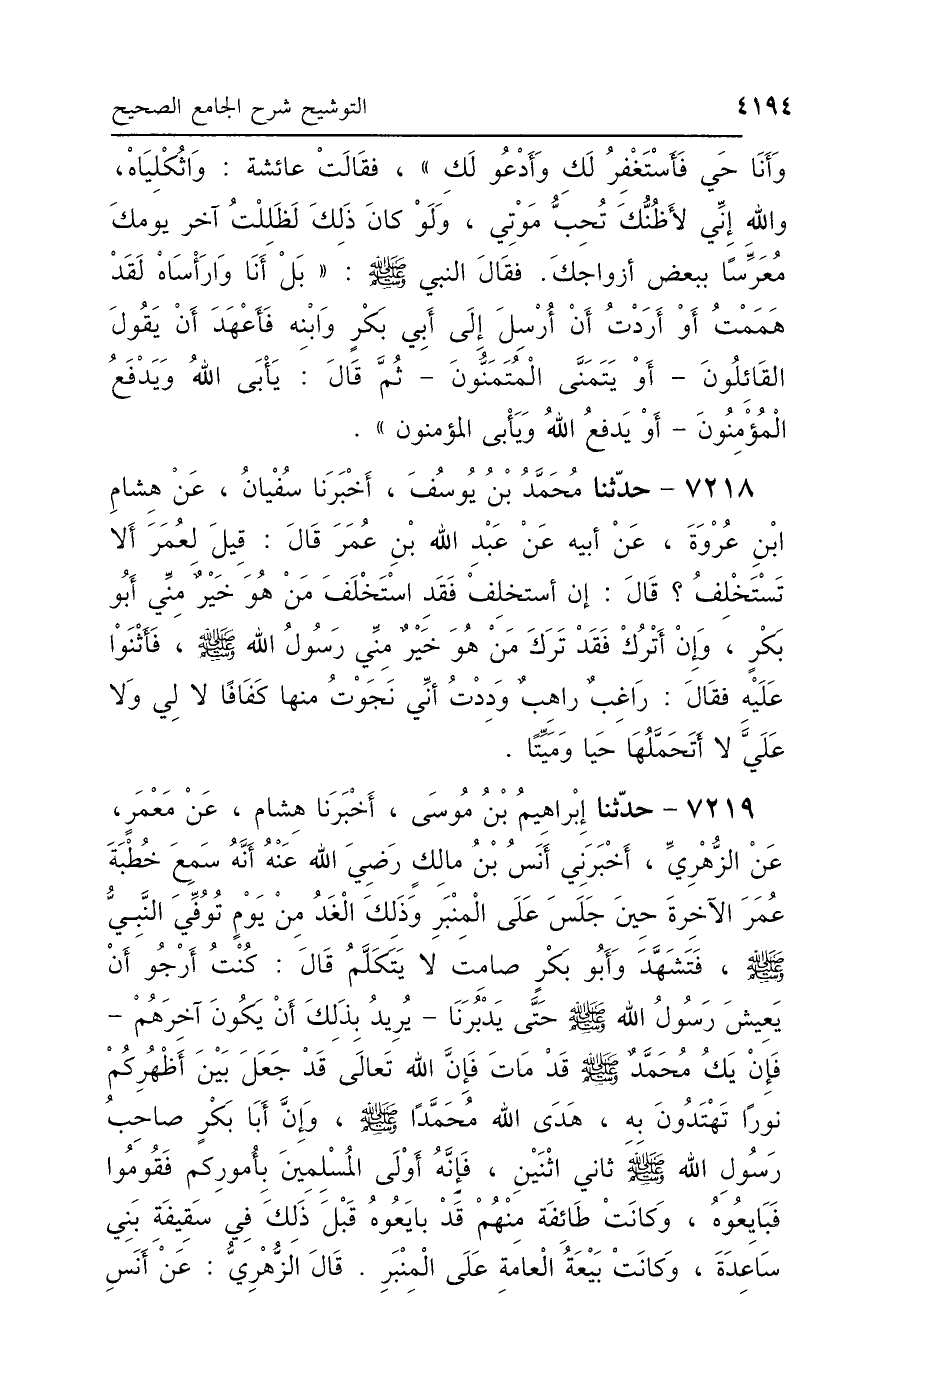 ٤١٩٤ التوشيح شرح الجامع الصحيح
وَأَنَا حَي فَأَسْتَغْفِرُ لَكِ وَأَدْعُو لَكِ » ، فقَالَتْ عائشة : وَاثُكْلِيَاهْ،
والله إِنِّي لأَظُنُّكَ تُحِبُّ مَوْتِي ، وَلَوْ كانَ ذَلِكَ لَظَلِلْتُ آخر يومِكَ
مُعَرِّسًا ببعض أزواجِكَ. فقَالَ النبي ﷺ : « بَلْ أَنَا وَارَأْسَاهْ لَقَدْ
هَمَمْتُ أَوْ أَرَدْتُ أَنْ أُرْسِلَ إِلَى أَبِي بَكْرٍ وَابْنِه فَأَعْهَدَ أَنْ يَقُولَ
القَائِلُونَ – أَوْ يَتَمَنَّى الْمُتَمَنُّونَ – ثُمَّ قَالَ : يَأْبَى اللهُ وَيَدْفَعُ
الْمُؤْمِنُونَ – أَوْ يَدفعُ اللهُ وَيَأْبى المؤمنون » .
٧٢١٨ – حدّثنا مُحَمَّدُ بْنُ يُوسُفَ ، أَخْبَرَنَا سُفْيانُ ، عَنْ هشامِ
ابْنِ عُرْوَةَ ، عَنْ أبيه عَنْ عَبْدِ الله بْنِ عُمَرَ قَالَ : قيلَ لِعُمَرَ أَلا
تَسْتَخْلِفُ ؟ قَالَ : إن أستخلفْ فَقَد اسْتَخْلَفَ مَنْ هُوَ خَيْرٌ مِنِّي أَبُو
بَكْرٍ ، وَإِنْ أَتْرُكْ فَقَدْ تَرَكَ مَنْ هُوَ خَيْرٌ مِنِّي رَسُولُ الله ﷺ ، فَأَثْنَوْا
عَلَيْهِ فقَالَ : رَاغِبٌ راهِبٌ وَدِدْتُ أَنِّي نَجَوْتُ منها كَفَافًا لا لِي وَلا
عَلَيَّ لا أَتَحَمَّلُهَا حَيا وَمَيِّتًا .
٧٢١٩ – حدّثنا إِبْراهيمُ بْنُ مُوسَى ، أَخْبَرَنا هشام ، عَنْ مَعْمَرٍ،
عَنْ الزُّهْرِيِّ ، أَخْبَرَنِي أَنَسُ بْنُ مالكٍ رَضِيَ الله عَنْهُ أَنَّهُ سَمِعَ خُطْبَةَ
عُمَرَ الآخِرَةَ حِينَ جَلَسَ عَلَى الْمِنْبَرِ وَذَلِكَ الْغَدُ مِنْ يَوْمِ تُوُفِّيَ النَّبِيُّ
ﷺ ، فَتَشَهَّدَ وَأَبُو بَكْرٍ صامت لا يَتَكَلَّمُ قَالَ : كُنْتُ أَرْجُو أَنْ
يَعِيشَ رَسُولُ الله ﷺ حَتَّى يَدْبُرَنَا – يُرِيدُ بِذَلِكَ أَنْ يَكُونَ آخِرَهُمْ –
فَإِنْ يَكُ مُحَمَّدٌ ﷺ قَدْ مَاتَ فَإِنَّ الله تَعَالَى قَدْ جَعَلَ بَيْنَ أَظْهُرِكُمْ
نورًا تَهْتَدُونَ بِهِ ، هَدَى الله مُحَمَّدًا ﷺ ، وَإِنَّ أَبَا بَكْرٍ صاحبُ
رَسُولِ الله ﷺ ثاني اثْنَيْنِ ، فَإِنَّهُ أَوْلَى الْمُسْلِمِينَ بِأُموركم فَقُومُوا
فَبَايِعُوهُ ، وَكَانَتْ طَائفة مِنْهُمْ قَدْ بايَعُوه قَبْلَ ذَلِكَ فِي سَقِيفَةِ بَنِي
سَاعِدَةَ ، وَكانَتْ بَيْعَةُ الْعامة عَلَى الْمِنْبَرِ . قَالَ الزُّهْرِيُّ : عَنْ أَنَسِ